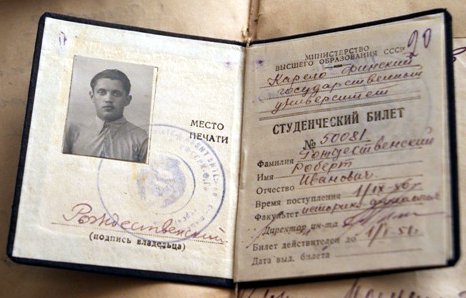 МЕСТО
ПЕЧАТИ
Рождественский
(подпись владельца)
20
МИНИСТЕРСТВО
ВЫСШЕГО ОБРАЗОВАНИЯ СССР
Карело-Финский
государственный
университет
СТУДЕНЧЕСКИЙ БИЛЕТ
№ 50081
Фамилия Рождественский
Имя Роберт
Отчество Иванович
Время поступления 1/IX-50г
Факультет историко-филологич
Директор ин-та
Билет действителен до 1/IX-51г.
Дата выд. билета